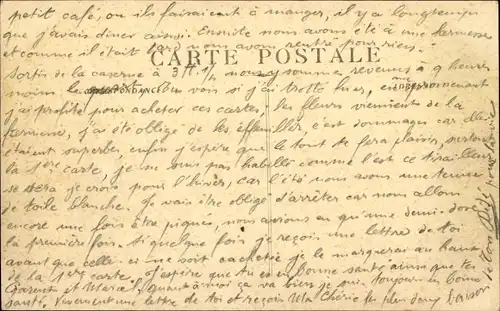 petit café, ou ils faisaient à manger, il y a longtemps
que j'avais diner ainsi. Ensuite nous avons été à une kermesse
et comme il était tard nous avons rentré pour rien.
CARTE POSTALE
Sortis de la caserne à 3 h 1/2 nous y sommes revenus à 9 heures
moins le tu vois si j'ai trotté hier, en me promenant
j'ai profité pour acheter ces cartes, les fleurs viennent de la
kermesse, j'ai été obligé de les effeuiller, c'est dommage car elles
étaient superbes, enfin j'espère que le tout te fera plaisir, surtout
la 1ère carte, je ne suis pas habillé comme l'est ce tirailleur
se sera je crois pour l'hiver, car l'été nous avons une tenue
de toile blanche. Je vais être obligé d'arrêter car nous allons
encore une fois être piqués, nous avions eu qu'une demi-dose
la première fois. Si quelque fois je reçois une lettre de toi
avant que celle-ci ne soit cachetée je le marquerai au haut
de la 1ère carte. J'espère que tu es en bonne santé ainsi que tes
Parents et Marcel, quant à moi ça va bien je suis toujours en bonne
santé. Vivement une lettre de toi et reçois Ma Chérie les plus doux baisers
de ton